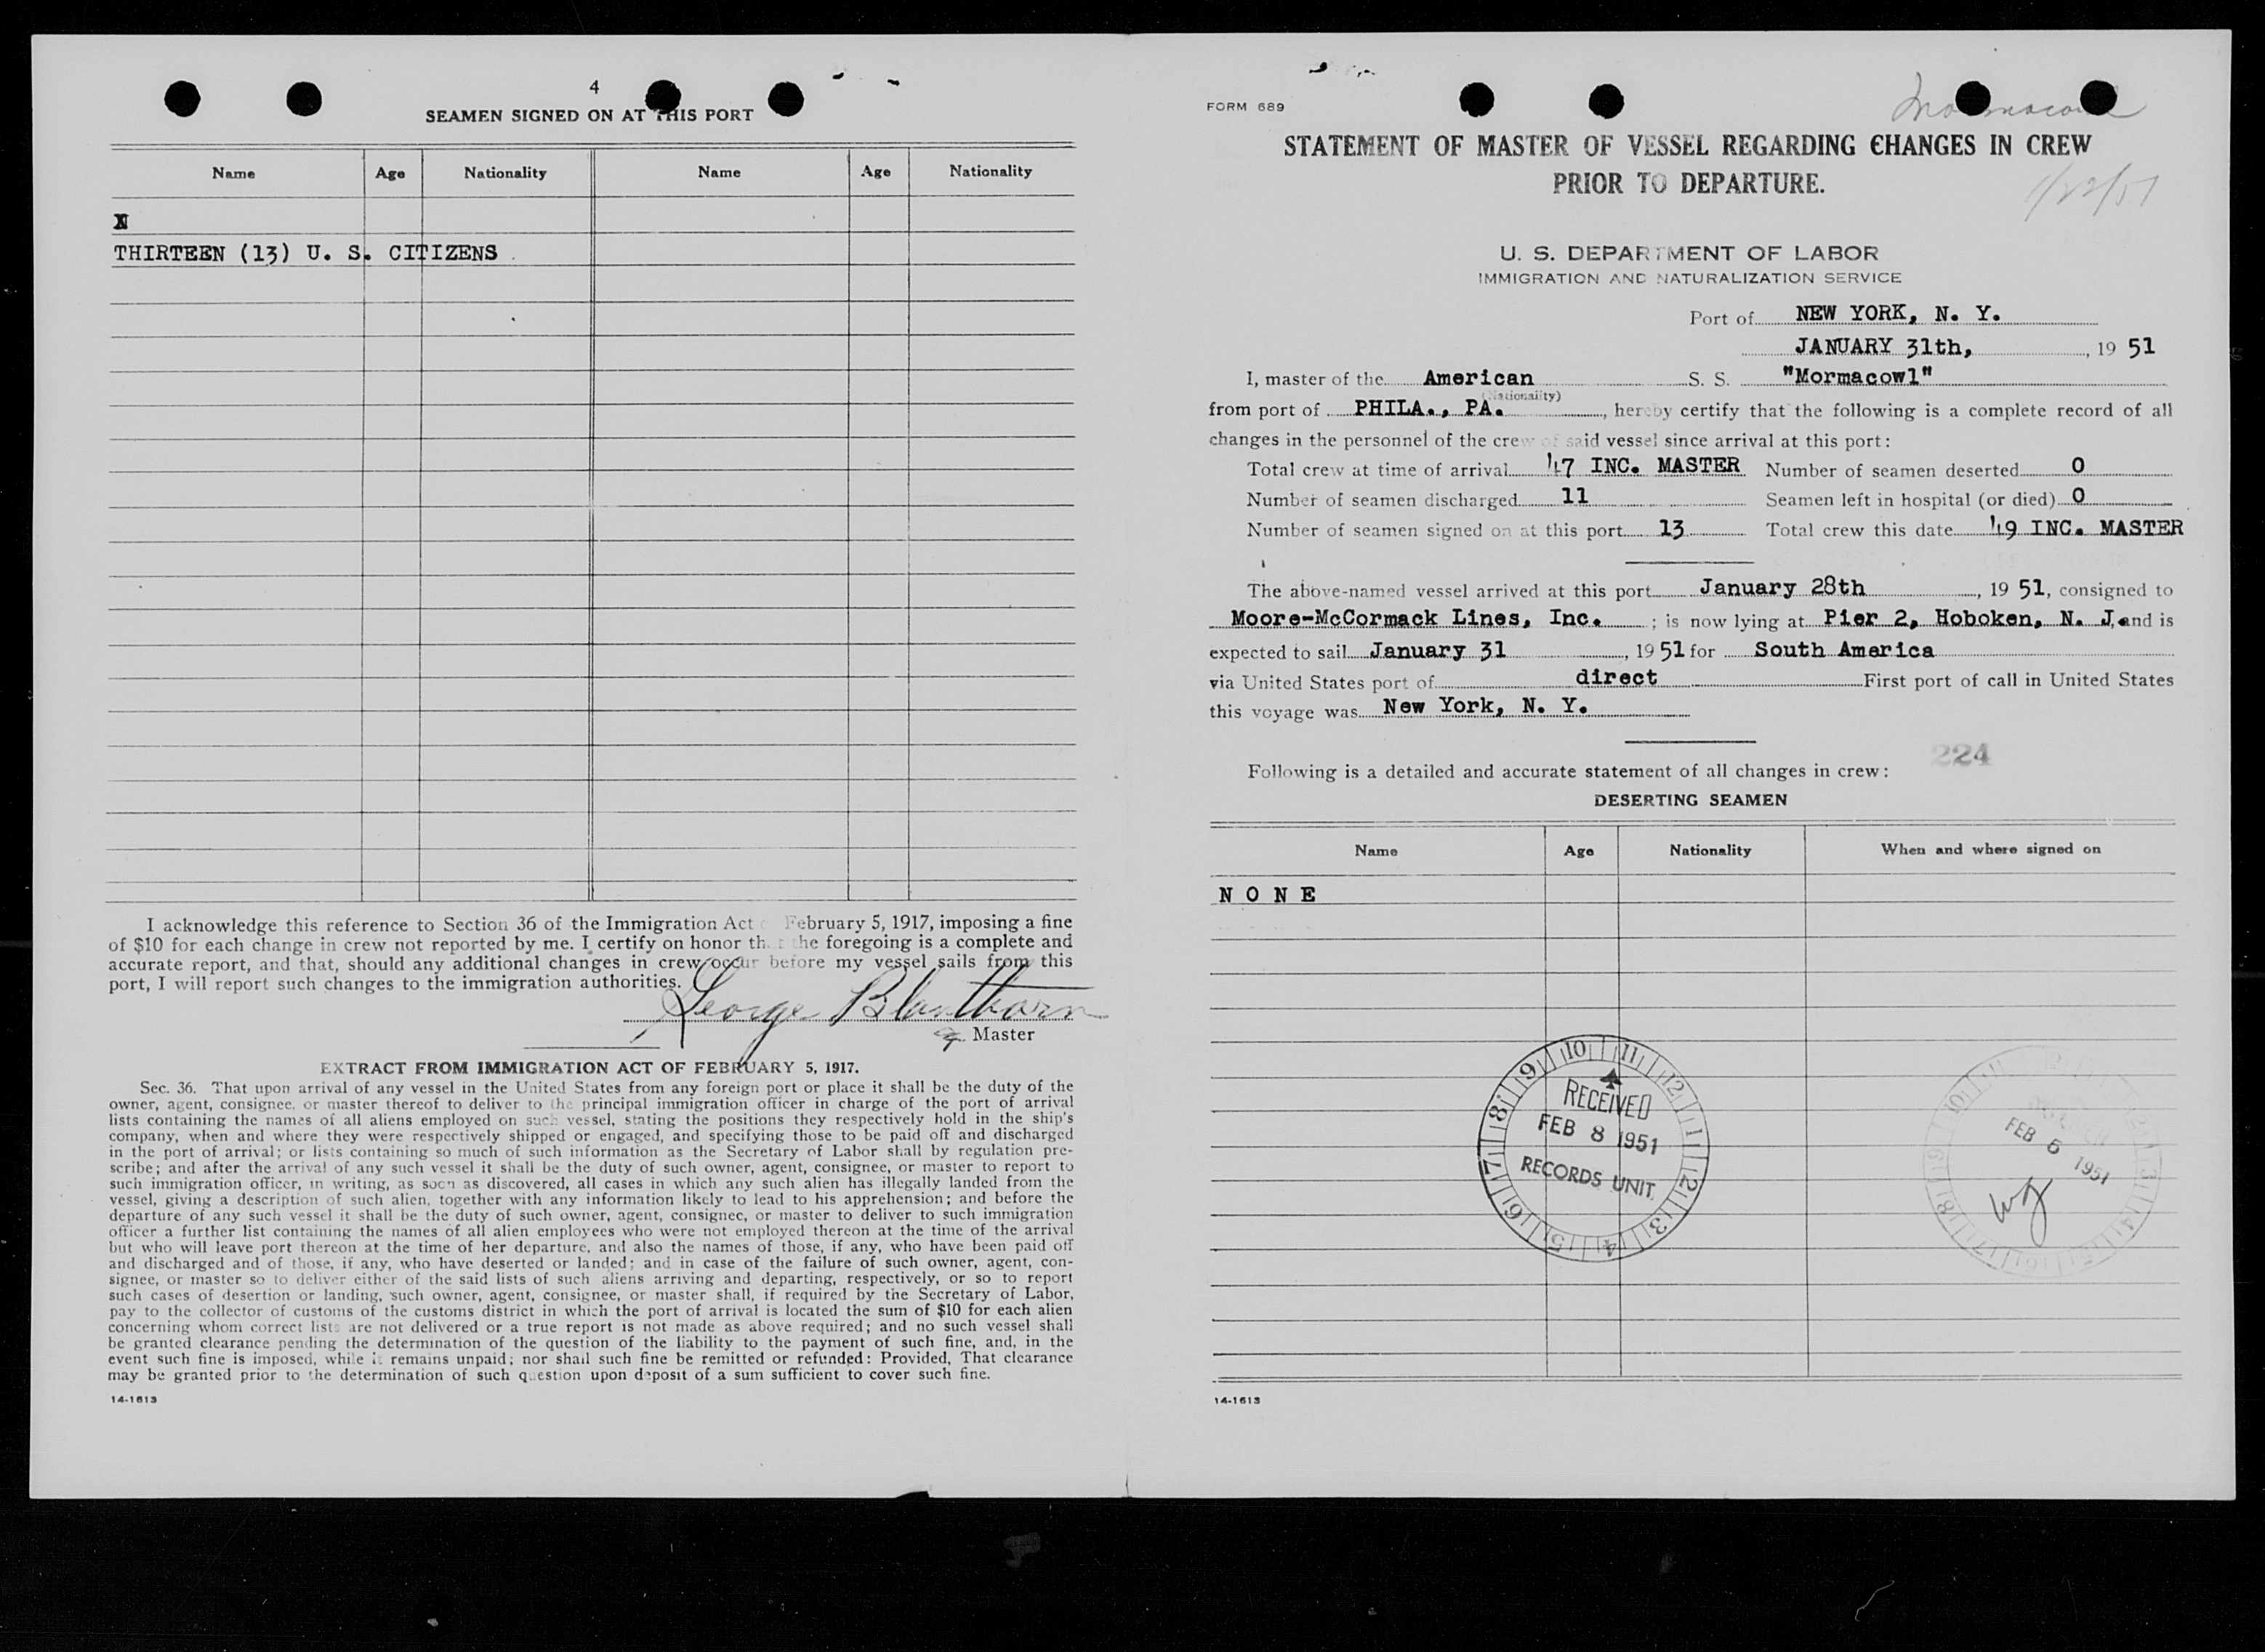 4
SEAMEN SIGNED ON AT THIS PORT
Name Age Nationality Name Age Nationality
N
THIRTEEN (13) U. S. CITIZENS
I acknowledge this reference to Section 36 of the Immigration Act February 5, 1917, imposing a fine
of $10 for each change in crew not reported by me. I certify on honor that the foregoing is a complete and
accurate report, and that, should any additional changes in crew occur before my vessel sails from this
port, I will report such changes to the immigration authorities.
George Blanthorn
Master
EXTRACT FROM IMMIGRATION ACT OF FEBRUARY 5, 1917.
Sec. 36. That upon arrival of any vessel in the United States from any foreign port or place it shall be the duty of the
owner, agent, consignee, or master thereof to deliver to the principal immigration officer in charge of the port of arrival
lists containing the names of all aliens employed on such vessel, stating the positions they respectively hold in the ship's
company, when and where they were respectively shipped or engaged, and specifying those to be paid off and discharged
in the port of arrival; or lists containing so much of such information as the Secretary of Labor shall by regulation pre-
scribe; and after the arrival of any such vessel it shall be the duty of such owner, agent, consignee, or master to report to
such immigration officer, in writing, as soon as discovered, all cases in which any such alien has illegally landed from the
vessel, giving a description of such alien, together with any information likely to lead to his apprehension; and before the
departure of any such vessel it shall be the duty of such owner, agent, consignee, or master to deliver to such immigration
officer a further list containing the names of all alien employees who were not employed thereon at the time of the arrival
but who will leave port thereon at the time of her departure, and also the names of those, if any, who have been paid off
and discharged and of those, if any, who have deserted or landed; and in case of the failure of such owner, agent, con-
signee, or master so to deliver either of the said lists of such aliens arriving and departing, respectively, or so to report
such cases of desertion or landing, such owner, agent, consignee, or master shall, if required by the Secretary of Labor,
pay to the collector of customs of the customs district in which the port of arrival is located the sum of $10 for each alien
concerning whom correct lists are not delivered or a true report is not made as above required; and no such vessel shall
be granted clearance pending the determination of the question of the liability to the payment of such fine, and, in the
event such fine is imposed, while it remains unpaid; nor shall such fine be remitted or refunded: Provided, That clearance
may be granted prior to the determination of such question upon deposit of a sum sufficient to cover such fine.
14-1613
FORM 689
Mormacowl
STATEMENT OF MASTER OF VESSEL REGARDING CHANGES IN CREW
PRIOR TO DEPARTURE.
1/22/51
U. S. DEPARTMENT OF LABOR
IMMIGRATION AND NATURALIZATION SERVICE
Port of NEW YORK, N. Y.
JANUARY 31th, , 19 51
I, master of the American S. S. "Mormacowl"
(Nationality)
from port of PHILA., PA. , hereby certify that the following is a complete record of all
changes in the personnel of the crew of said vessel since arrival at this port:
Total crew at time of arrival 47 INC. MASTER Number of seamen deserted 0
Number of seamen discharged 11 Seamen left in hospital (or died) 0
Number of seamen signed on at this port 13 Total crew this date 49 INC. MASTER
The above-named vessel arrived at this port January 28th , 19 51, consigned to
Moore-McCormack Lines, Inc. ; is now lying at Pier 2, Hoboken, N. J. and is
expected to sail January 31 , 19 51 for South America
via United States port of direct First port of call in United States
this voyage was New York, N. Y.
224
Following is a detailed and accurate statement of all changes in crew:
DESERTING SEAMEN
Name Age Nationality When and where signed on
N O N E
RECEIVED
FEB 8 1951
RECORDS UNIT
FEB 6 1951
14-1613